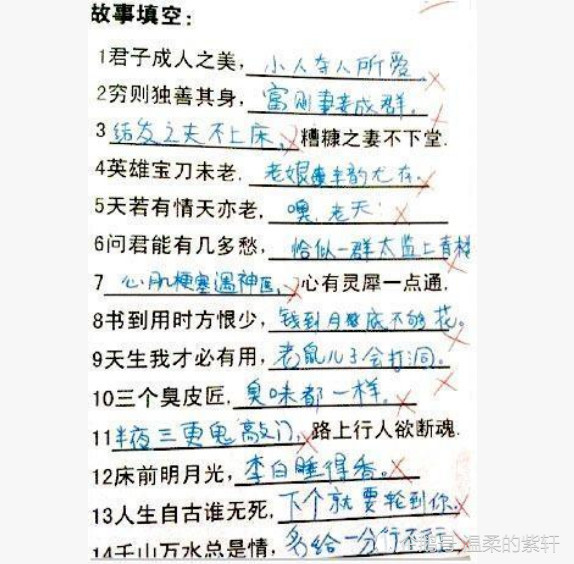 故事填空：
1君子成人之美，小人夺人所爱。
2穷则独善其身，富则妻妾成群。
3结发之夫不上床，糟糠之妻不下堂.
4英雄宝刀未老，老娘丰韵尤存。
5天若有情天亦老，噢，老天
6问君能有几多愁，恰似一群太监上青楼
7心肌梗塞遇神医，心有灵犀一点通.
8书到用时方恨少，钱到月底不够花。
9天生我才必有用，老鼠儿子会打洞。
10三个臭皮匠，臭味都一样。
11半夜三更鬼敲门，路上行人欲断魂.
12床前明月光，李白睡得香。
13人生自古谁无死，下个就要轮到你。
14千山万水总是情，多给一分行不行
温柔的紫轩